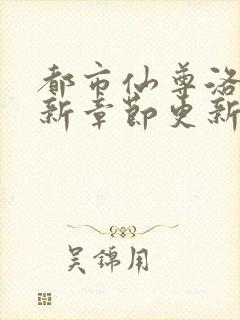 都市仙尊洛
新章节更新
吴锦用